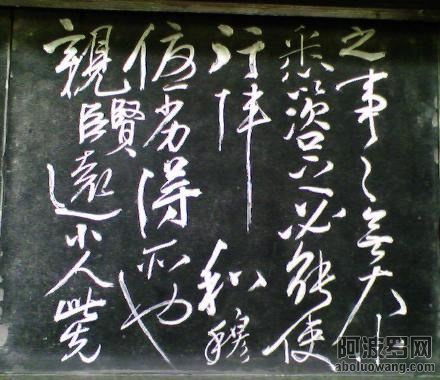 之事〻無大小
悉以咨之必能使
行陣和穆
優劣得所也
親賢臣遠小人此先
阿波罗网
aboluowang.com